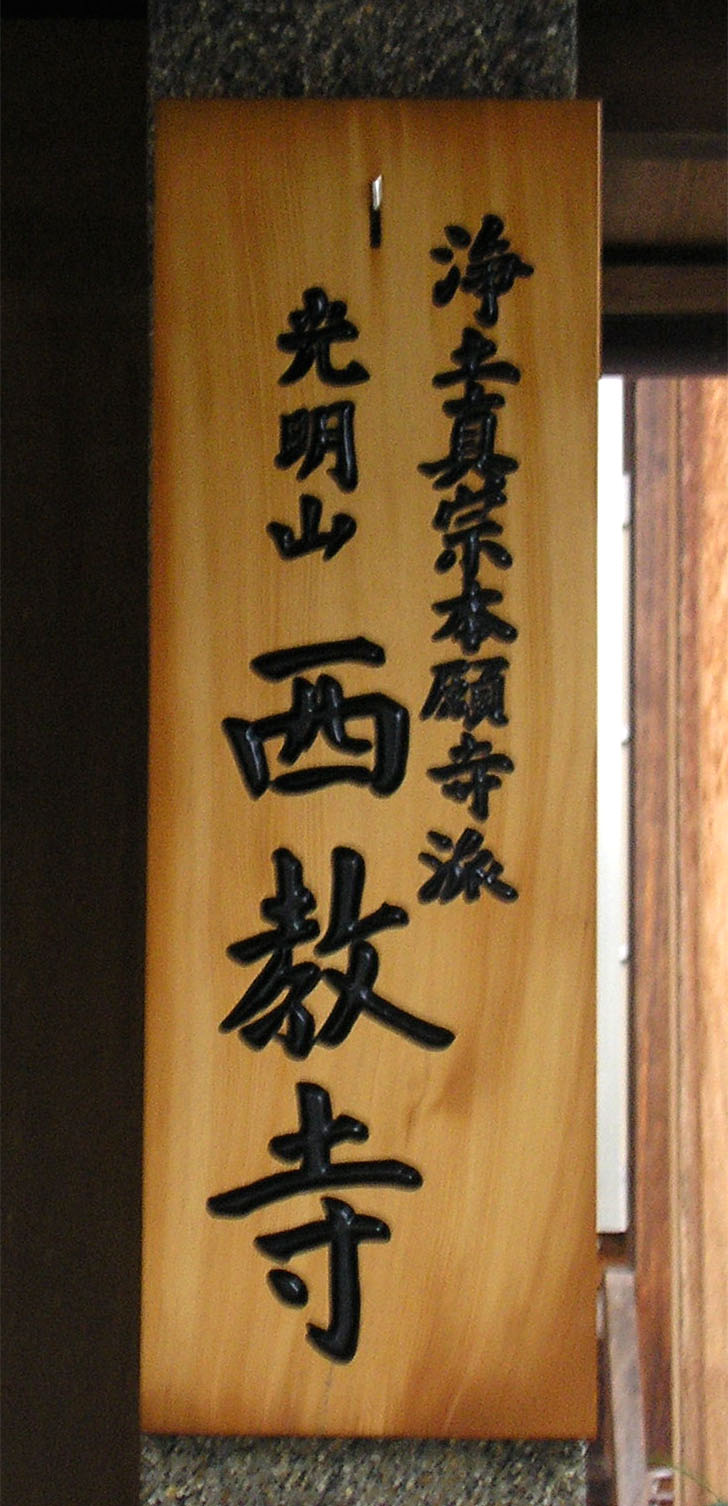 浄土真宗本願寺派
光明山 西教寺